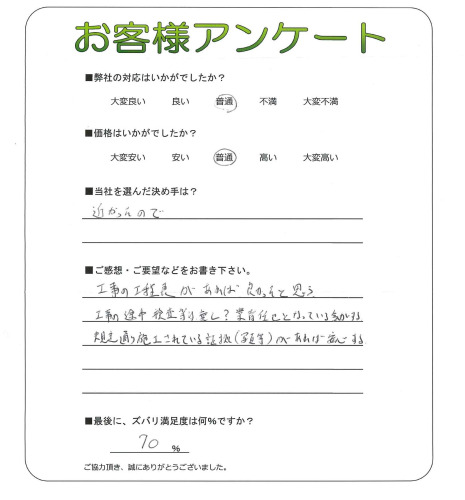 お客様アンケート
■弊社の対応はいかがでしたか?
大変良い 良い 普通 不満 大変不満
■価格はいかがでしたか?
大変安い 安い 普通 高い 大変高い
■当社を選んだ決め手は?
近かったので
■ご感想・ご要望などをお書き下さい。
工事の工程表があれば良かったと思う
工事の途中検査等は無し?業者任せとなっている気がする
規定通り施工されている証拠(写真等)があれば安心する
■最後に、ズバリ満足度は何%ですか?
70 %
ご協力頂き、誠にありがとうございました。